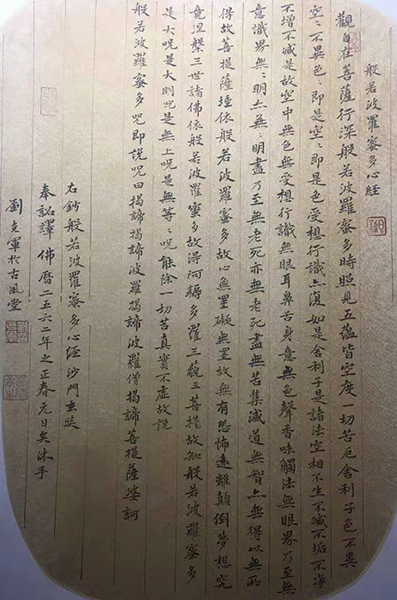 般若波羅蜜多心經
觀自在菩薩行深般若波羅蜜多時照見五蘊皆空度一切苦厄舍利子色不異
空〻不異色〻即是空〻即是色受想行識亦復如是舍利子是諸法空相不生不滅不垢不淨
不增不減是故空中無色無受想行識無眼耳鼻舌身意無色聲香味觸法無眼界乃至無
意識界無〻明亦無〻明盡乃至無老死亦無老死盡無苦集滅道無智亦無得以無所
得故菩提薩埵依般若波羅蜜多故心無罣礙無罣故無有恐怖遠離顛倒夢想究
竟涅槃三世諸佛依般若波羅蜜多故得阿耨多羅三藐三菩提故知般若波羅蜜多
是大咒是大明咒是無上咒是無等〻咒能除一切苦真實不虛故說
般若波羅蜜多咒即說咒曰揭諦揭諦波羅揭諦波羅僧揭諦菩提薩婆訶
右鈔般若波羅蜜多心經沙門玄奘
奉詔譯佛曆二五六二年之正春元日矣沐手
劉克軍於古風堂